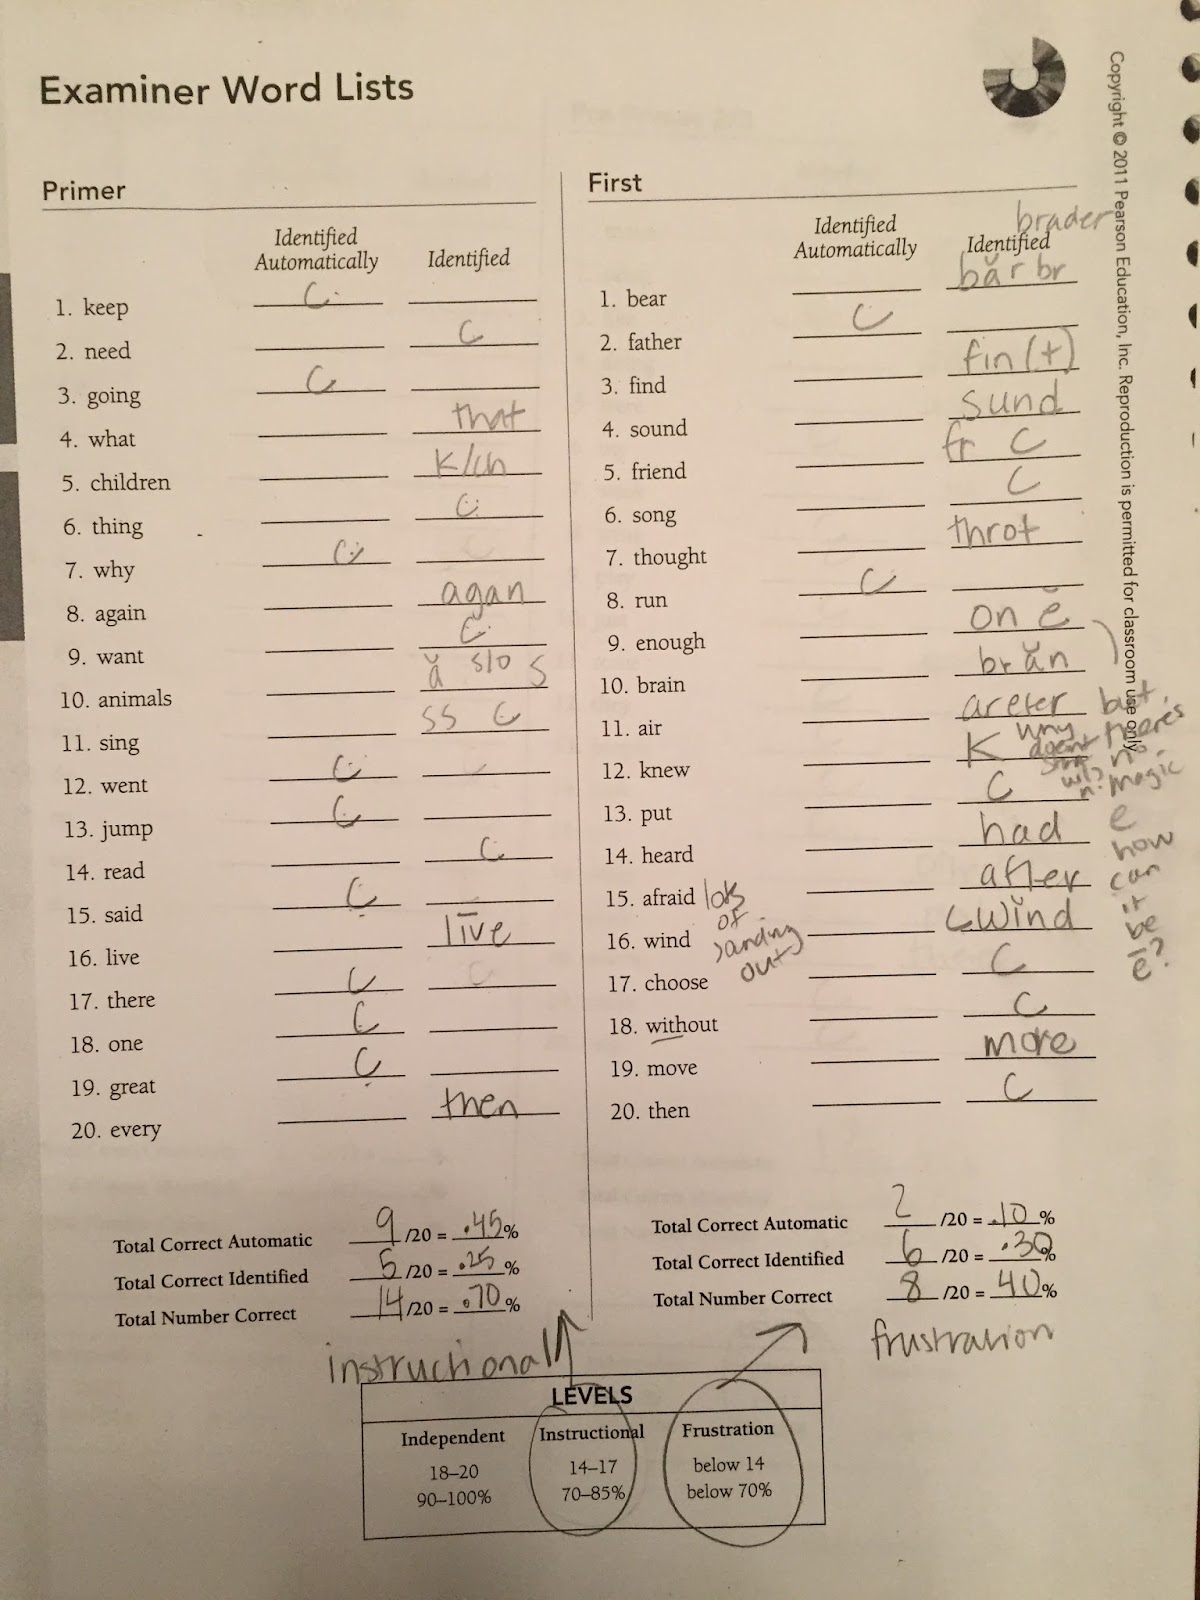 Examiner Word Lists
Copyright © 2011 Pearson Education, Inc. Reproduction is permitted for classroom use only.
Primer
Identified Automatically Identified
1. keep C
2. need C
3. going C
4. what that
5. children k/ch
6. thing C
7. why C
8. again agan
9. want C
10. animals ă slo s
11. sing ss C
12. went C
13. jump C
14. read C
15. said C
16. live līve
17. there C
18. one C
19. great C
20. every then
Total Correct Automatic 9 /20 = .45 %
Total Correct Identified 5 /20 = .25 %
Total Number Correct 14 /20 = .70 %
instructional
First
brader
Identified Automatically Identified
1. bear băr br
2. father C
3. find fin(t)
4. sound sund
5. friend fr C
6. song C
7. thought throt
8. run C
9. enough on ĕ
10. brain brăn
11. air areter
12. knew K
13. put C
14. heard had
15. afraid after
16. wind C wĭnd
17. choose C
18. without C
19. move more
20. then C
lots
of
sanding
out
why
but
there's
no
magic
e
how
can
it
be
ē?
Total Correct Automatic 2 /20 = .10 %
Total Correct Identified 6 /20 = .30 %
Total Number Correct 8 /20 = 40 %
frustration
LEVELS
Independent Instructional Frustration
18–20 14–17 below 14
90–100% 70–85% below 70%